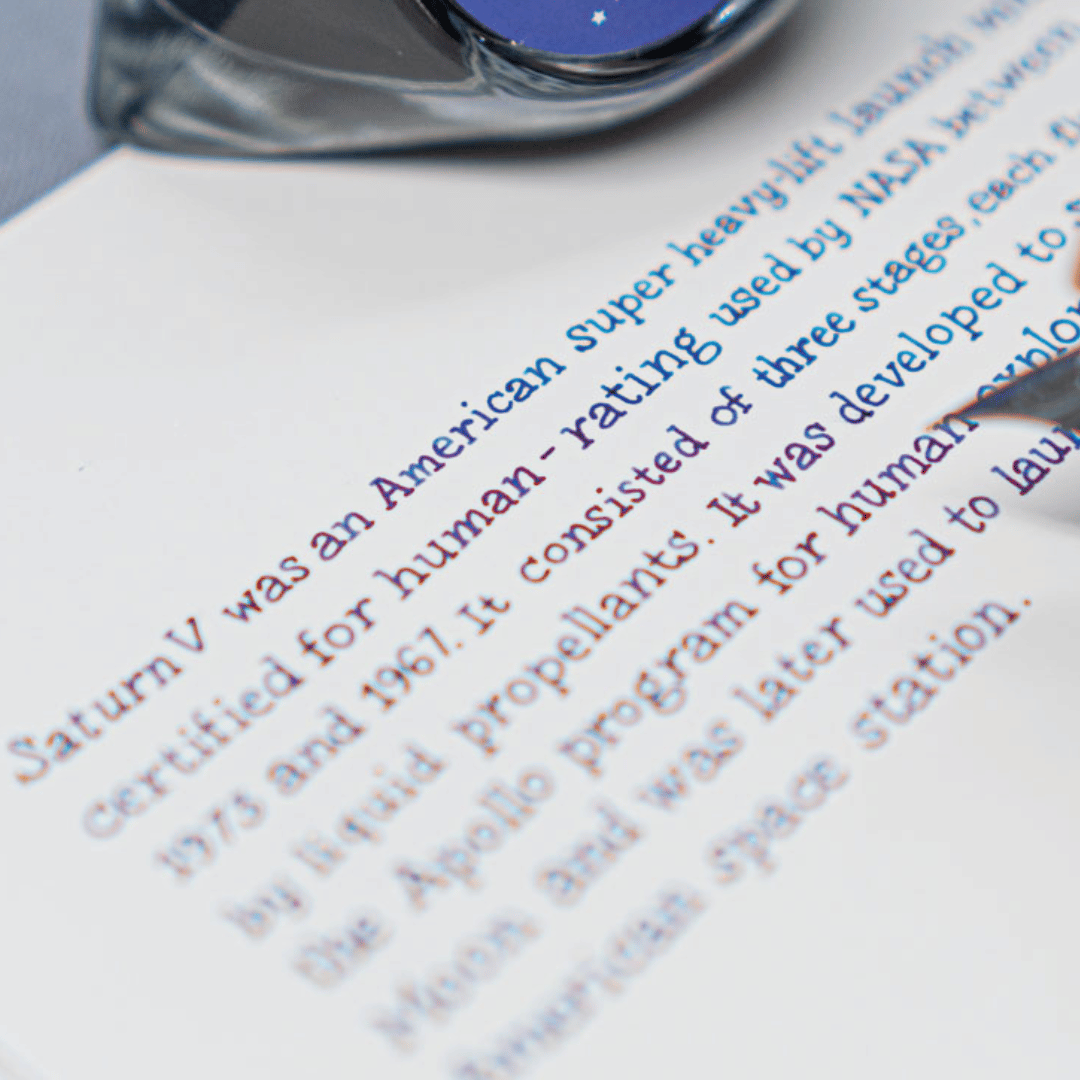 Saturn V was an American Super heavy-lift launch
Certified for human - rating used by NASA between
1973 and 1967. It consisted of three stages, each
by liquid propellants. It was developed to
the Apollo program for human
Moon and was later used to
American space station.